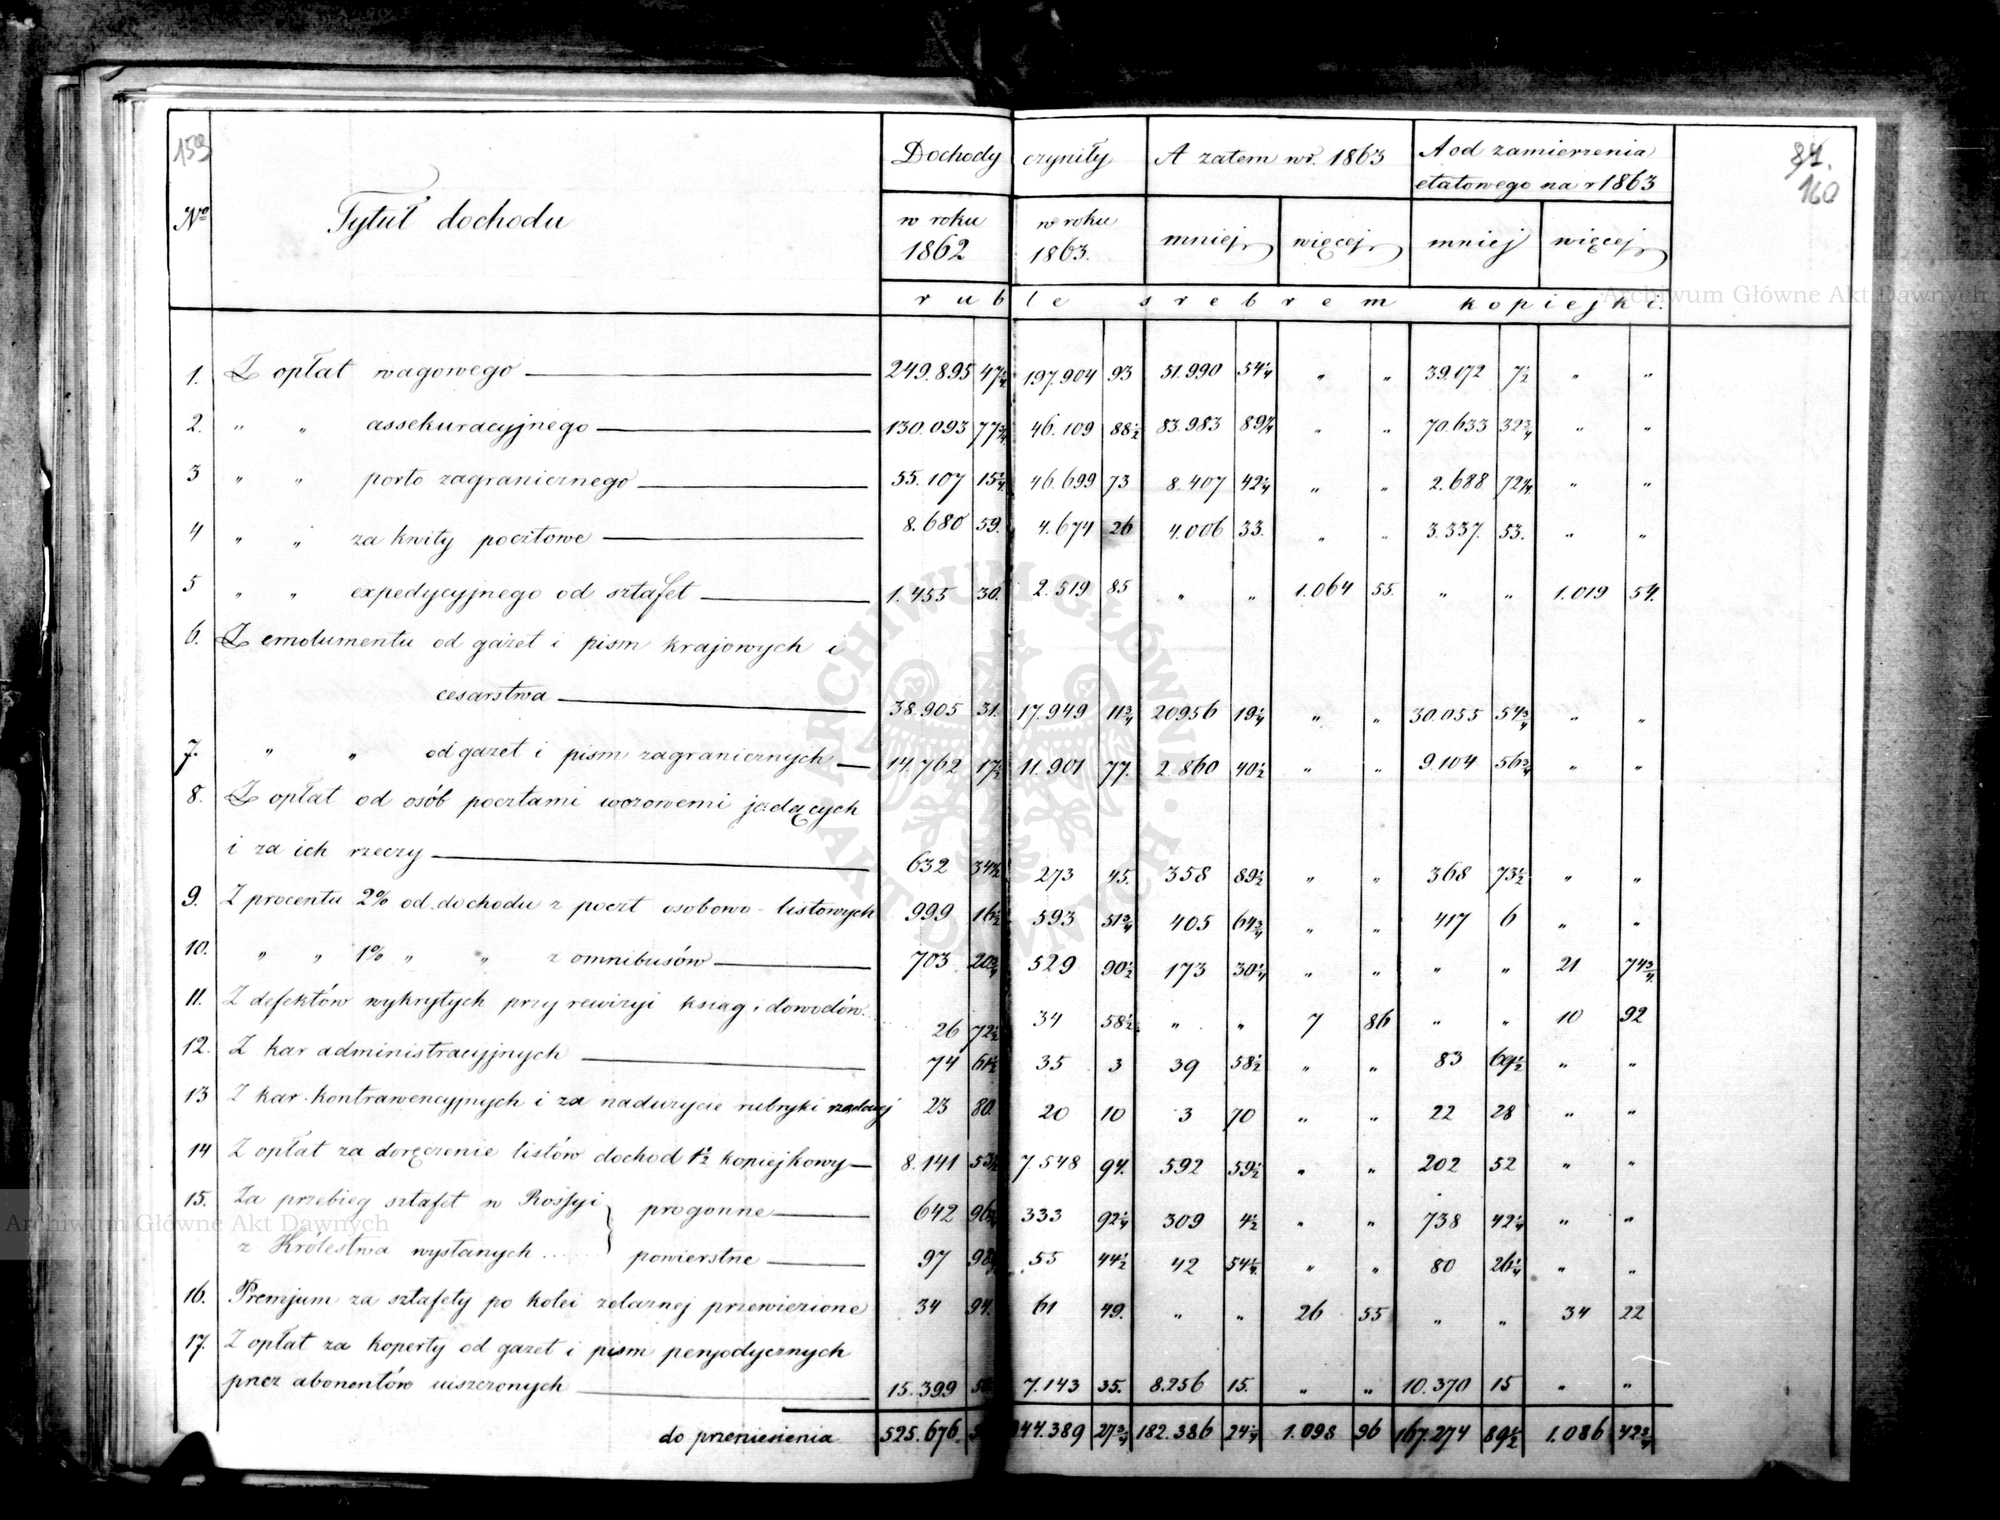 159
84.
160
Nº Tytuł dochodu Dochody czyniły A zatem w r. 1863 A od zamierzenia etatowego na r 1863
w roku 1862 w roku 1863. mniej więcej mniej więcej
ruble srebrem kopiejki.
1. Z opłat wagowego 249.895 47¼ 197.904 93 51.990 54¼ " " 39.172 7½ " "
2. " " assekuracyjnego 130.093 77¾ 46.109 88½ 83.983 89¼ " " 70.633 32¾ " "
3 " " porto zagranicznego 55.107 15¼ 46.699 73 8.407 42¼ " " 2.688 72¼ " "
4 " " za kwity pocztowe 8.680 59. 4.674 26 4.006 33. " " 3.337. 53. " "
5 " " expedycyjnego od sztafet 1.455 30. 2.519 85 " " 1.064 55. " " 1.019 54.
6. Z emolumentu od gazet i pism krajowych i
cesarstwa 38.905 31. 17.949 11¾ 20956 19¼ " " 30.055 54¾ " "
7. " " od gazet i pism zagranicznych 14.762 17½ 11.901 77. 2.860 40½ " " 9.104 56¾ " "
8. Z opłat od osób pocztami wozowemi jadących
i za ich rzeczy 632 34½ 273 45. 358 89½ " " 368 73½ " "
9. Z procentu 2% od dochodu z poczt osobowo-listowych 999 16½ 593 51¾ 405 64¾ " " 417 6 " "
10. " " 1% " " z omnibusów 703 20¾ 529 90½ 173 30¼ " " " " 21 74¾
11. Z defektów wykrytych przy rewizyi ksiąg i dowodów 26 72½ 34 58½ " " 7 86 " " 10 92
12. Z kar administracyjnych 74 61½ 35 3 39 58½ " " 83 69½ " "
13 Z kar kontrawencyjnych i za nadużycie rubryki rządowej 23 80. 20 10 3 70 " " 22 28 " "
14 Z opłat za doręczenie listów dochod 1½ kopiejkowy 8.141 53½ 7.548 94. 592 59½ " " 202 52 " "
15. Za przebieg sztafet w Rossyi progonne 642 96¾ 333 92¼ 309 4½ " " 738 42¼ " "
z Królestwa wysłanych powierstne 97 98¾ 55 44½ 42 54¼ " " 80 26¼ " "
16. Premjum za sztafety po kolei żelaznej przewiezione 34 94. 61 49. " " 26 55 " " 34 22
17. Z opłat za koperty od gazet i pism peryodycznych
przez abonentów uiszczonych 15.399 7.143 35. 8.256 15. " " 10.370 15 " "
do przeniesienia 525.676 344.389 27¾ 182.386 24¼ 1.098 96 167.274 89½ 1.086 42¾
ARCHIWUM GŁÓWNE AKT DAWNYCH
Archiwum Główne Akt Dawnych
Archiwum Główne Akt Dawnych